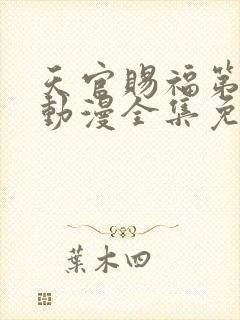 天官賜福第
動漫全集免
葉木四